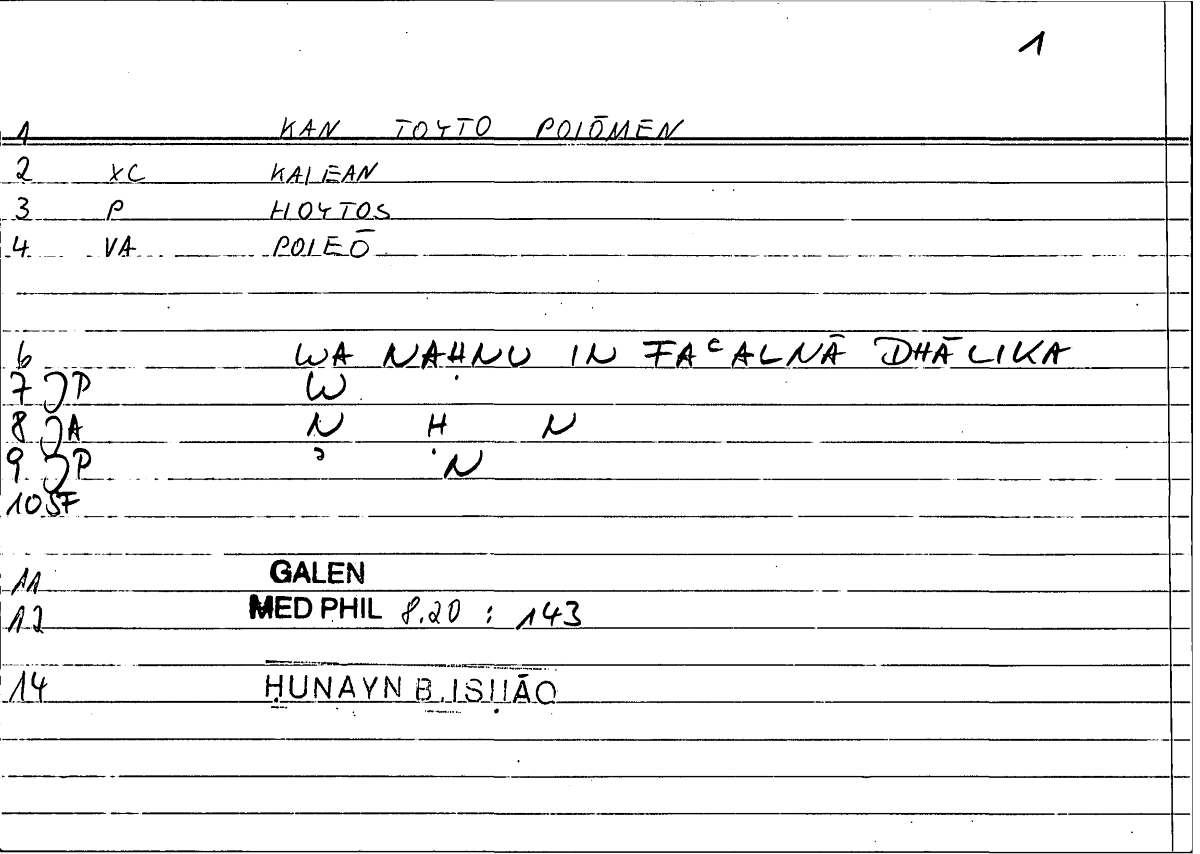 1
1 KAN TOYTO POIŌMEN
2 XC KAI EAN
3 P HOYTOS
4 VA POIEŌ
6 WA NAḤNU IN FAᶜALNĀ DHĀLIKA
7 JP W
8 JA N Ḥ N
9 JP ᵓ N
10 SF
11 GALEN
12 MED PHIL 8.20 : 143
14 ḤUNAYN B. ISḤĀQ